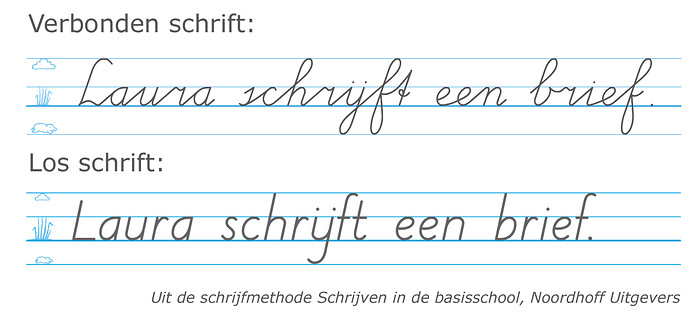 Verbonden schrift:
Laura schrijft een brief.
Los schrift:
Laura schrijft een brief.
Uit de schrijfmethode Schrijven in de basisschool, Noordhoff Uitgevers